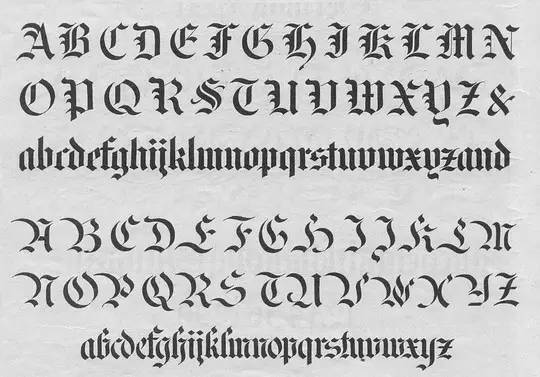 ABCDEFGHIKLMN
OPQRSTUVWXYZ&
abcdefghijklmnopqrstuvwxyzand
ABCDEFGHIJKLM
NOPQRSTUVWXYZ
abcdefghijklmnopqrstuvwxyz